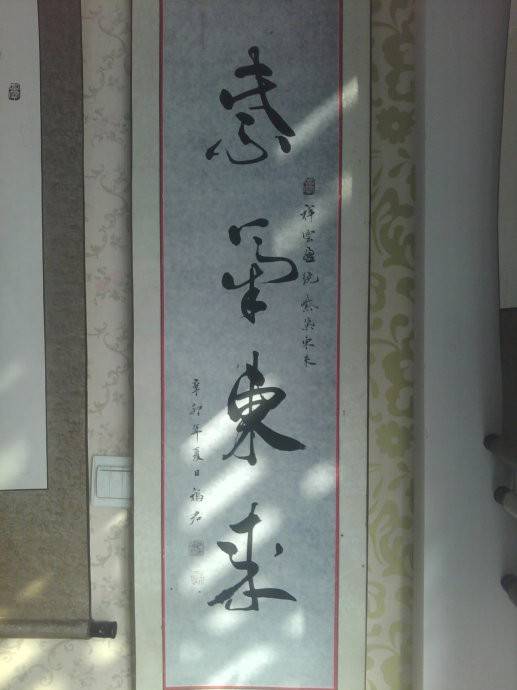 紫氣東來
祥雲遶繞紫氣東來
辛卯年夏日福君